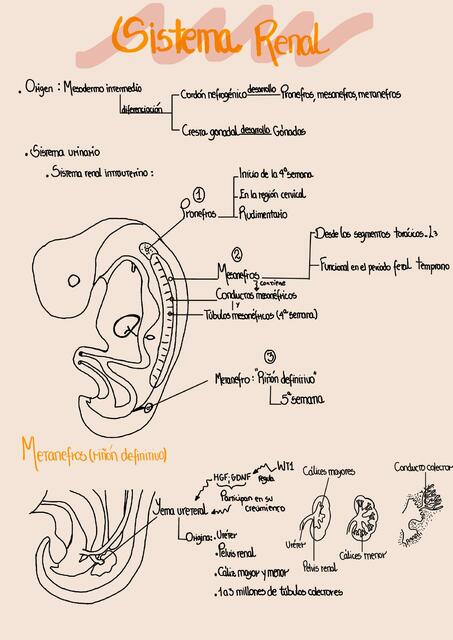 Sistema Renal
. Origen : Mesodermo intermedio
diferenciación
Cordón nefrogénico desarrollo Pronefros, mesonefros, metanefros
Cresta gonadal desarrollo Gónadas
. Sistema urinario
. Sistema renal intrauterino :
1
Pronefros
Inicio de la 4ª semana
En la región cervical
Rudimentario
2
Mesonefros
contiene
Desde los segmentos torácicos - L3
Funcional en el periodo fetal Temprano
Conductos mesonéfricos
y
Túbulos mesonéfricos (4ª semana)
3
Metanefro : "Riñón definitivo"
5ª semana
Metanefros (riñón definitivo)
WT1
regula
HGF, GDNF
Participan en su
crecimiento
Yema ureteral
Origina :
. Uréter
. Pelvis renal
. Cáliz mayor y menor
. 1 a 3 millones de túbulos colectores
Cálices mayores
Conducto colector
Uréter
Pelvis renal
Cálices menor